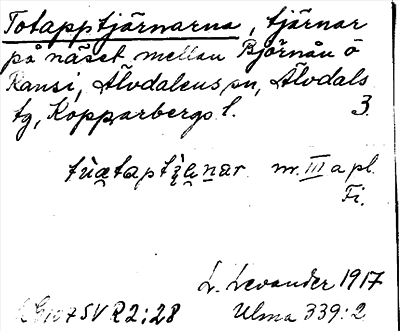 Totapptjärnarna, tjärnar
på näset mellan Björnån o
Ransi, Älvdalens sn, Älvdals
tg, Kopparbergs l. 3.
nr. III a pl.
Fi.
L. Levander 1917
R2:28 Ulma 339:2